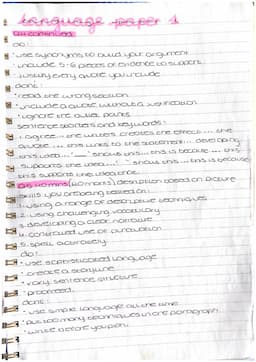 language paper 1
Q4 continued
do:
• use synonyms to build your argument
• include 5-6 pieces of evidence to support
• justify every quote you include
dont:
• read the wrong section
• include a quote without a justification
• ignore the bullet points
sentence starters and keywords:
• I agree... the writers creates the effect... the
quote... this links to the statement... developing
this idea... '__' shows this... this is because... this
supports the idea... '__' shows this... this is because
this supports the idea that
Q5 40 mins (40 marks) description based on picture
skills you are being tested on:
1. using a range of descriptive techniques
2. using challenging vocabulary
3. developing a clear narrative
4. controlled use of punctuation
5. spell accurately
do:
• use sophisticated language
• create a storyline
• vary sentence structure
• proofread
dont:
• use simple language all the time
• put too many techniques in one paragraph
• write before you plan